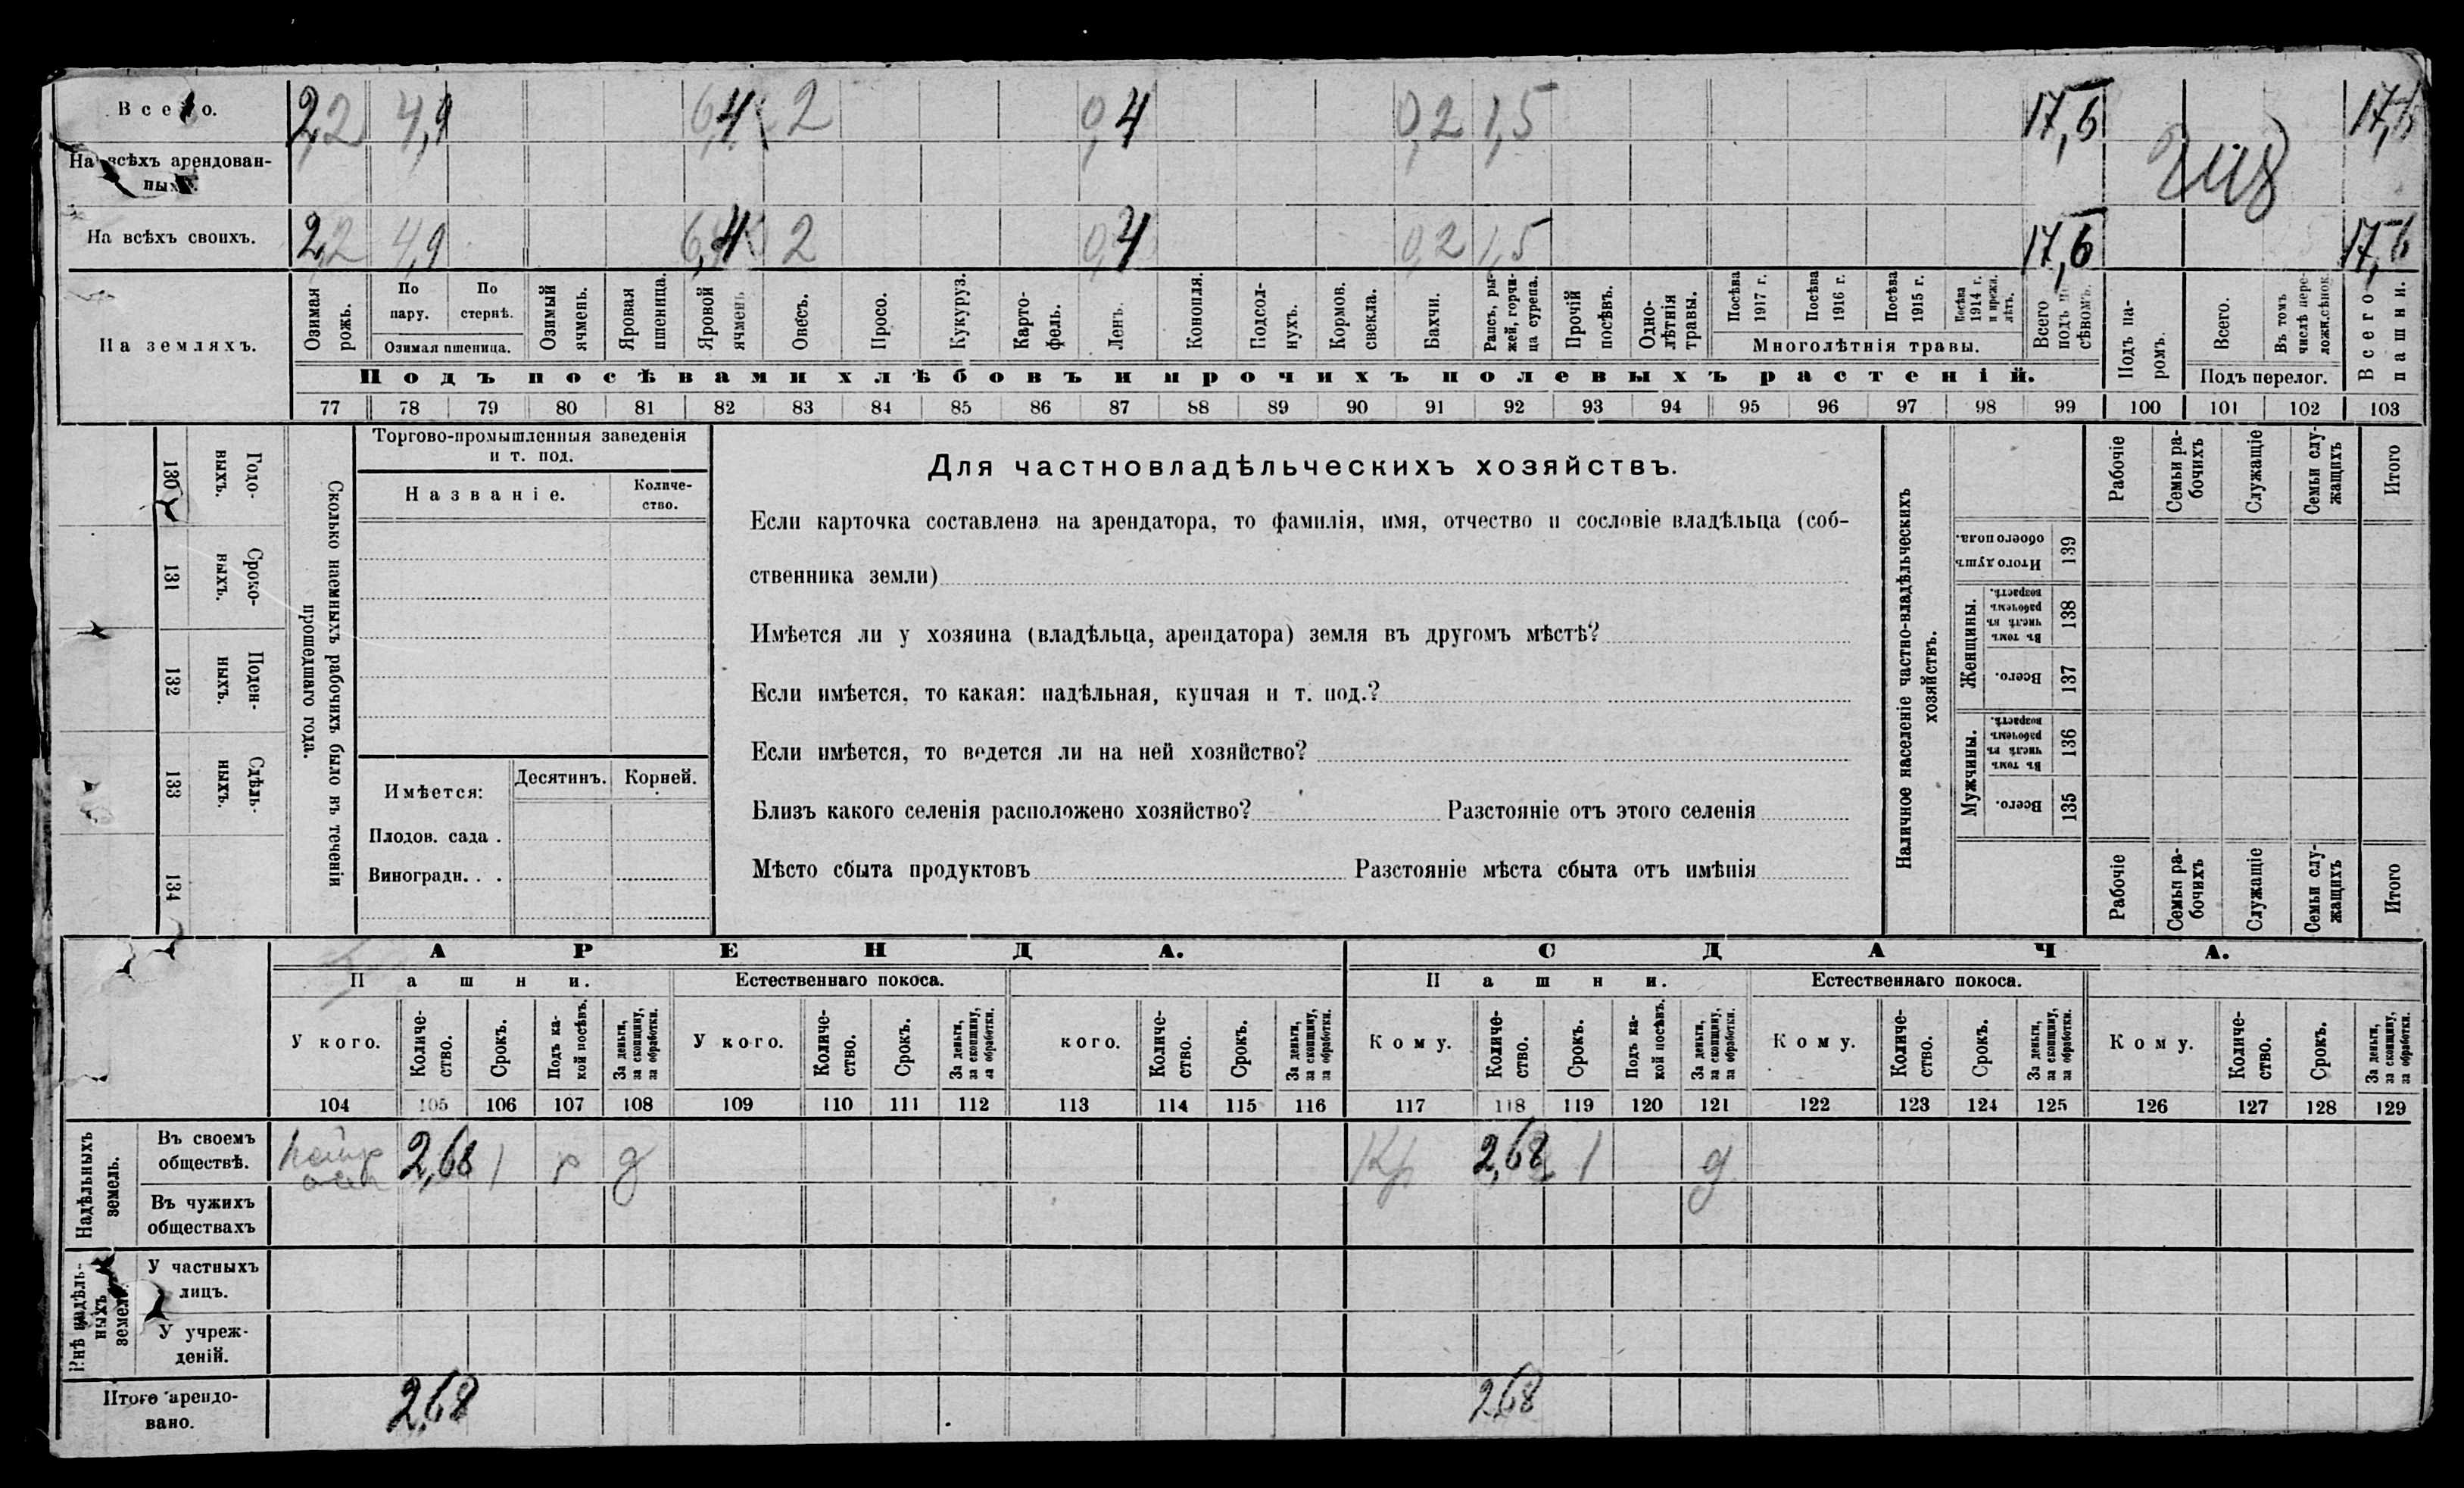 Всего. 2,2 4,9 6,4 2 0,4 0,2 1,5 17,6 17,6
На всѣхъ арендован-
ныхъ.
На всѣхъ своихъ. 2,2 4,9 6,4 2 0,4 0,2 1,5 17,6 17,6
На земляхъ.
Озимая рожь.
По пару.
По стернѣ.
Озимая пшеница.
Озимый ячмень.
Яровая пшеница.
Яровой ячмень
Овесъ.
Просо.
Кукуруз.
Карто-
фель.
Ленъ.
Конопля.
Подсол-
нухъ.
Кормов. свекла.
Бахчи.
Рапсъ, ры-
жей, горчи-
ца сурепа.
Прочій посѣвъ.
Одно-
лѣтнія травы.
Посѣва 1917 г.
Посѣва 1916 г.
Посѣва 1915 г.
Посѣва 1914 г. и прежн. лѣтъ.
Многолѣтнія травы.
Всего подъ по-
сѣвомъ.
Подъ па-
ромъ.
Всего.
Въ томъ числѣ пере-
ложн. сѣнок.
Подъ перелог.
Всего пашни.
Подъ посѣвами хлѣбовъ и прочихъ полевыхъ растеній.
77 78 79 80 81 82 83 84 85 86 87 88 89 90 91 92 93 94 95 96 97 98 99 100 101 102 103
Годо-
выхъ. 130
Сроко-
ныхъ. 131
Поден-
ныхъ. 132
Сдѣль-
ныхъ. 133
134
Сколько наемныхъ рабочихъ было въ теченіи
прошедшаго года.
Торгово-промышленныя заведенія
и т. под.
Названіе.
Количе-
ство.
Имѣется:
Десятинъ. Корней.
Плодов. сада .
Виноградн. . .
Для частновладѣльческихъ хозяйствъ.
Если карточка составлена на арендатора, то фамилія, имя, отчество и сословіе владѣльца (соб-
ственника земли)
Имѣется ли у хозяина (владѣльца, арендатора) земля въ другомъ мѣстѣ?
Если имѣется, то какая: надѣльная, купчая и т. под.?
Если имѣется, то ведется ли на ней хозяйство?
Близъ какого селенія расположено хозяйство? Разстояніе отъ этого селенія
Мѣсто сбыта продуктовъ Разстояніе мѣста сбыта отъ имѣнія
Наличное населеніе частно-владѣльческихъ
хозяйствъ.
Рабочіе
Семьи ра-
бочихъ
Служащіе
Семьи слу-
жащихъ
Итого
Итого душъ обоего пола. 139
Женщины.
Въ томъ числѣ въ рабочемъ возрастѣ. 138
Всего. 137
Мужчины.
Въ томъ числѣ въ рабочемъ возрастѣ. 136
Всего. 135
Рабочіе
Семьи ра-
бочихъ
Служащіе
Семьи слу-
жащихъ
Итого
АРЕНДА. СДАЧА.
Пашни. Естественнаго покоса. Пашни. Естественнаго покоса.
У кого.
Количе-
ство.
Срокъ.
Подъ ка-
кой посѣвъ.
За деньги,
за скопщину,
за обработки.
У кого.
Количе-
ство.
Срокъ.
За деньги,
за скопщину,
за обработки.
кого.
Количе-
ство.
Срокъ.
За деньги,
за скопщину,
за обработки.
Кому.
Количе-
ство.
Срокъ.
Подъ ка-
кой посѣвъ.
За деньги,
за скопщину,
за обработки.
Кому.
Количе-
ство.
Срокъ.
За деньги,
за скопщину,
за обработки.
Кому.
Количе-
ство.
Срокъ.
За деньги,
за скопщину,
за обработки.
104 105 106 107 108 109 110 111 112 113 114 115 116 117 118 119 120 121 122 123 124 125 126 127 128 129
Надѣльныхъ
земель.
Въ своемъ
обществѣ. 2,68 1 р д Кр 2,68 1 д
Въ чужихъ
обществахъ
Внѣ надѣль-
ныхъ
земель
У частныхъ
лицъ.
У учреж-
деній.
Итого арендо-
вано. 2,68 2,68